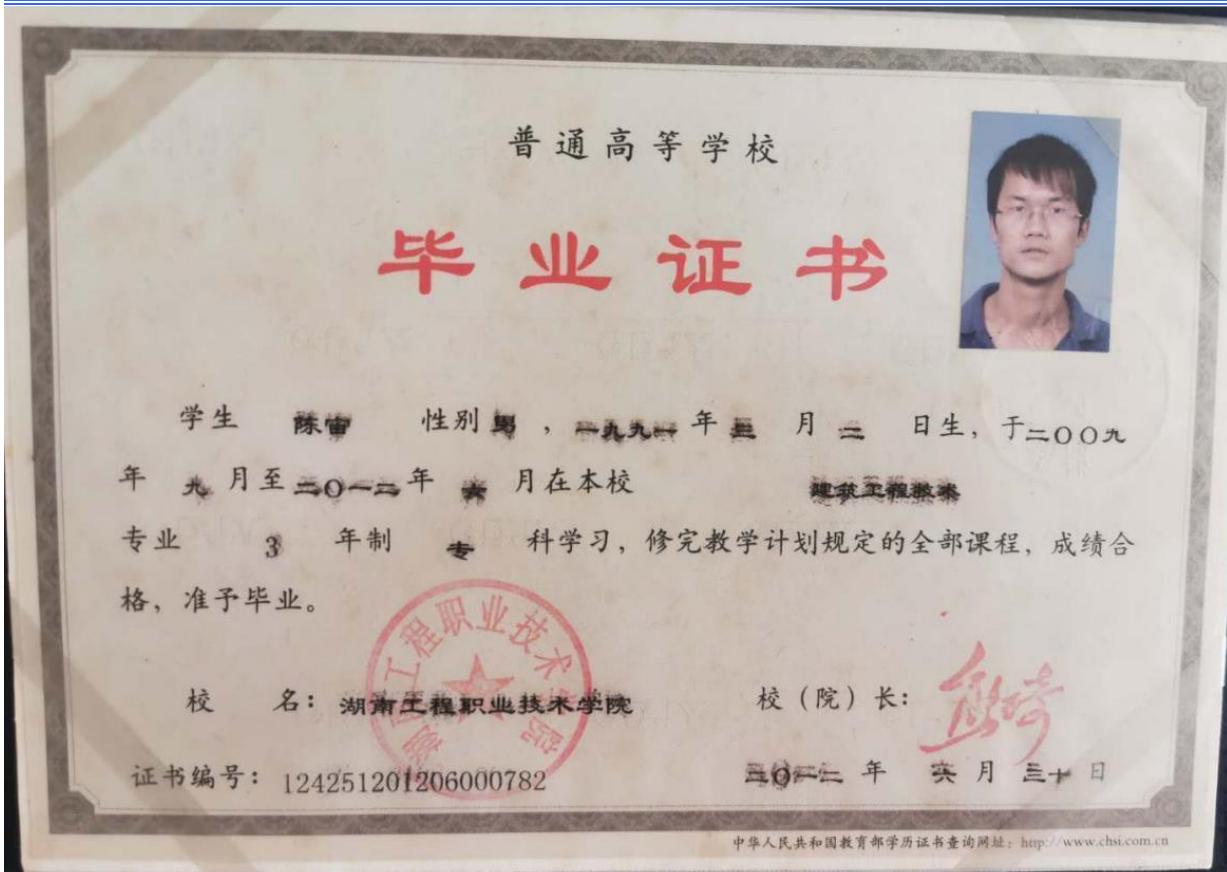 普通高等学校
毕业证书
学生 陈宙 性别 男，一九九一年三月二日生，于二〇〇九
年九月至二〇一二年六月在本校 建筑工程技术
专业 3 年制 专 科学习，修完教学计划规定的全部课程，成绩合
格，准予毕业。
校 名：湖南工程职业技术学院 校（院）长：
证书编号：124251201206000782 二〇一二年 六月三十日
中华人民共和国教育部学历证书查询网址：http://www.chsi.com.cn